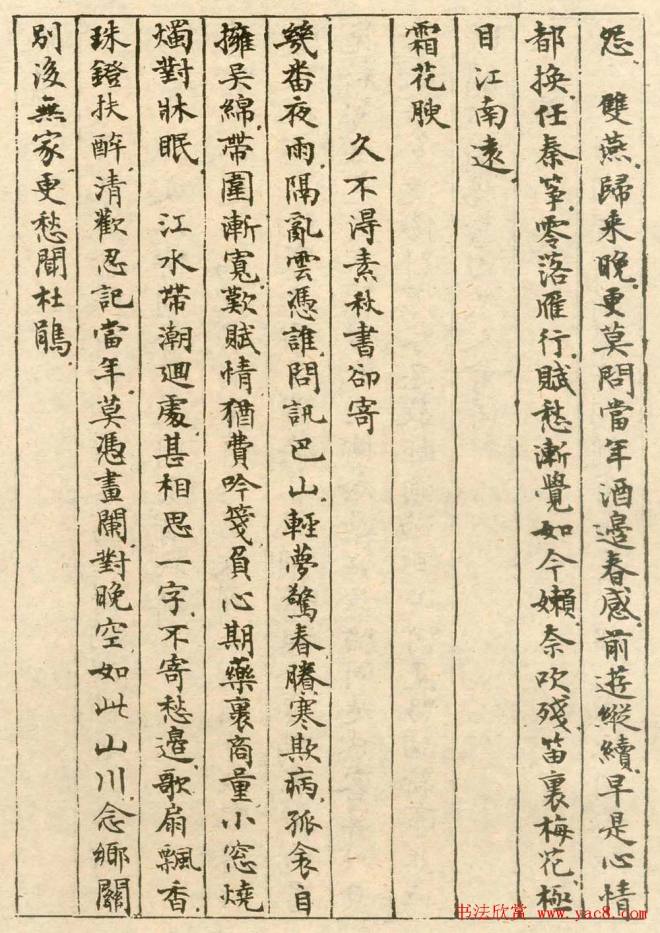 怨　雙燕歸來晚更莫問當年酒邊春感前遊縱續早是心情
都換任秦箏零落雁行賦愁漸覺如今嬾奈吹殘笛裏梅花極
目江南遠
霜花腴
久不得素秋書卻寄
幾番夜雨隔亂雲憑誰問訊巴山輕夢驚春賸寒欺病孤衾自
擁吳綿帶圍漸寬歎賦情猶費吟箋負心期藥裹商量小窗燒
燭對牀眠　江水帶潮迴處甚相思一字不寄愁邊歌扇飄香
珠鐙扶醉清歡忍記當年莫憑畫闌對晚空如此山川念鄉關
別後無家更愁聞杜鵑
书法欣赏 www.yac8.com